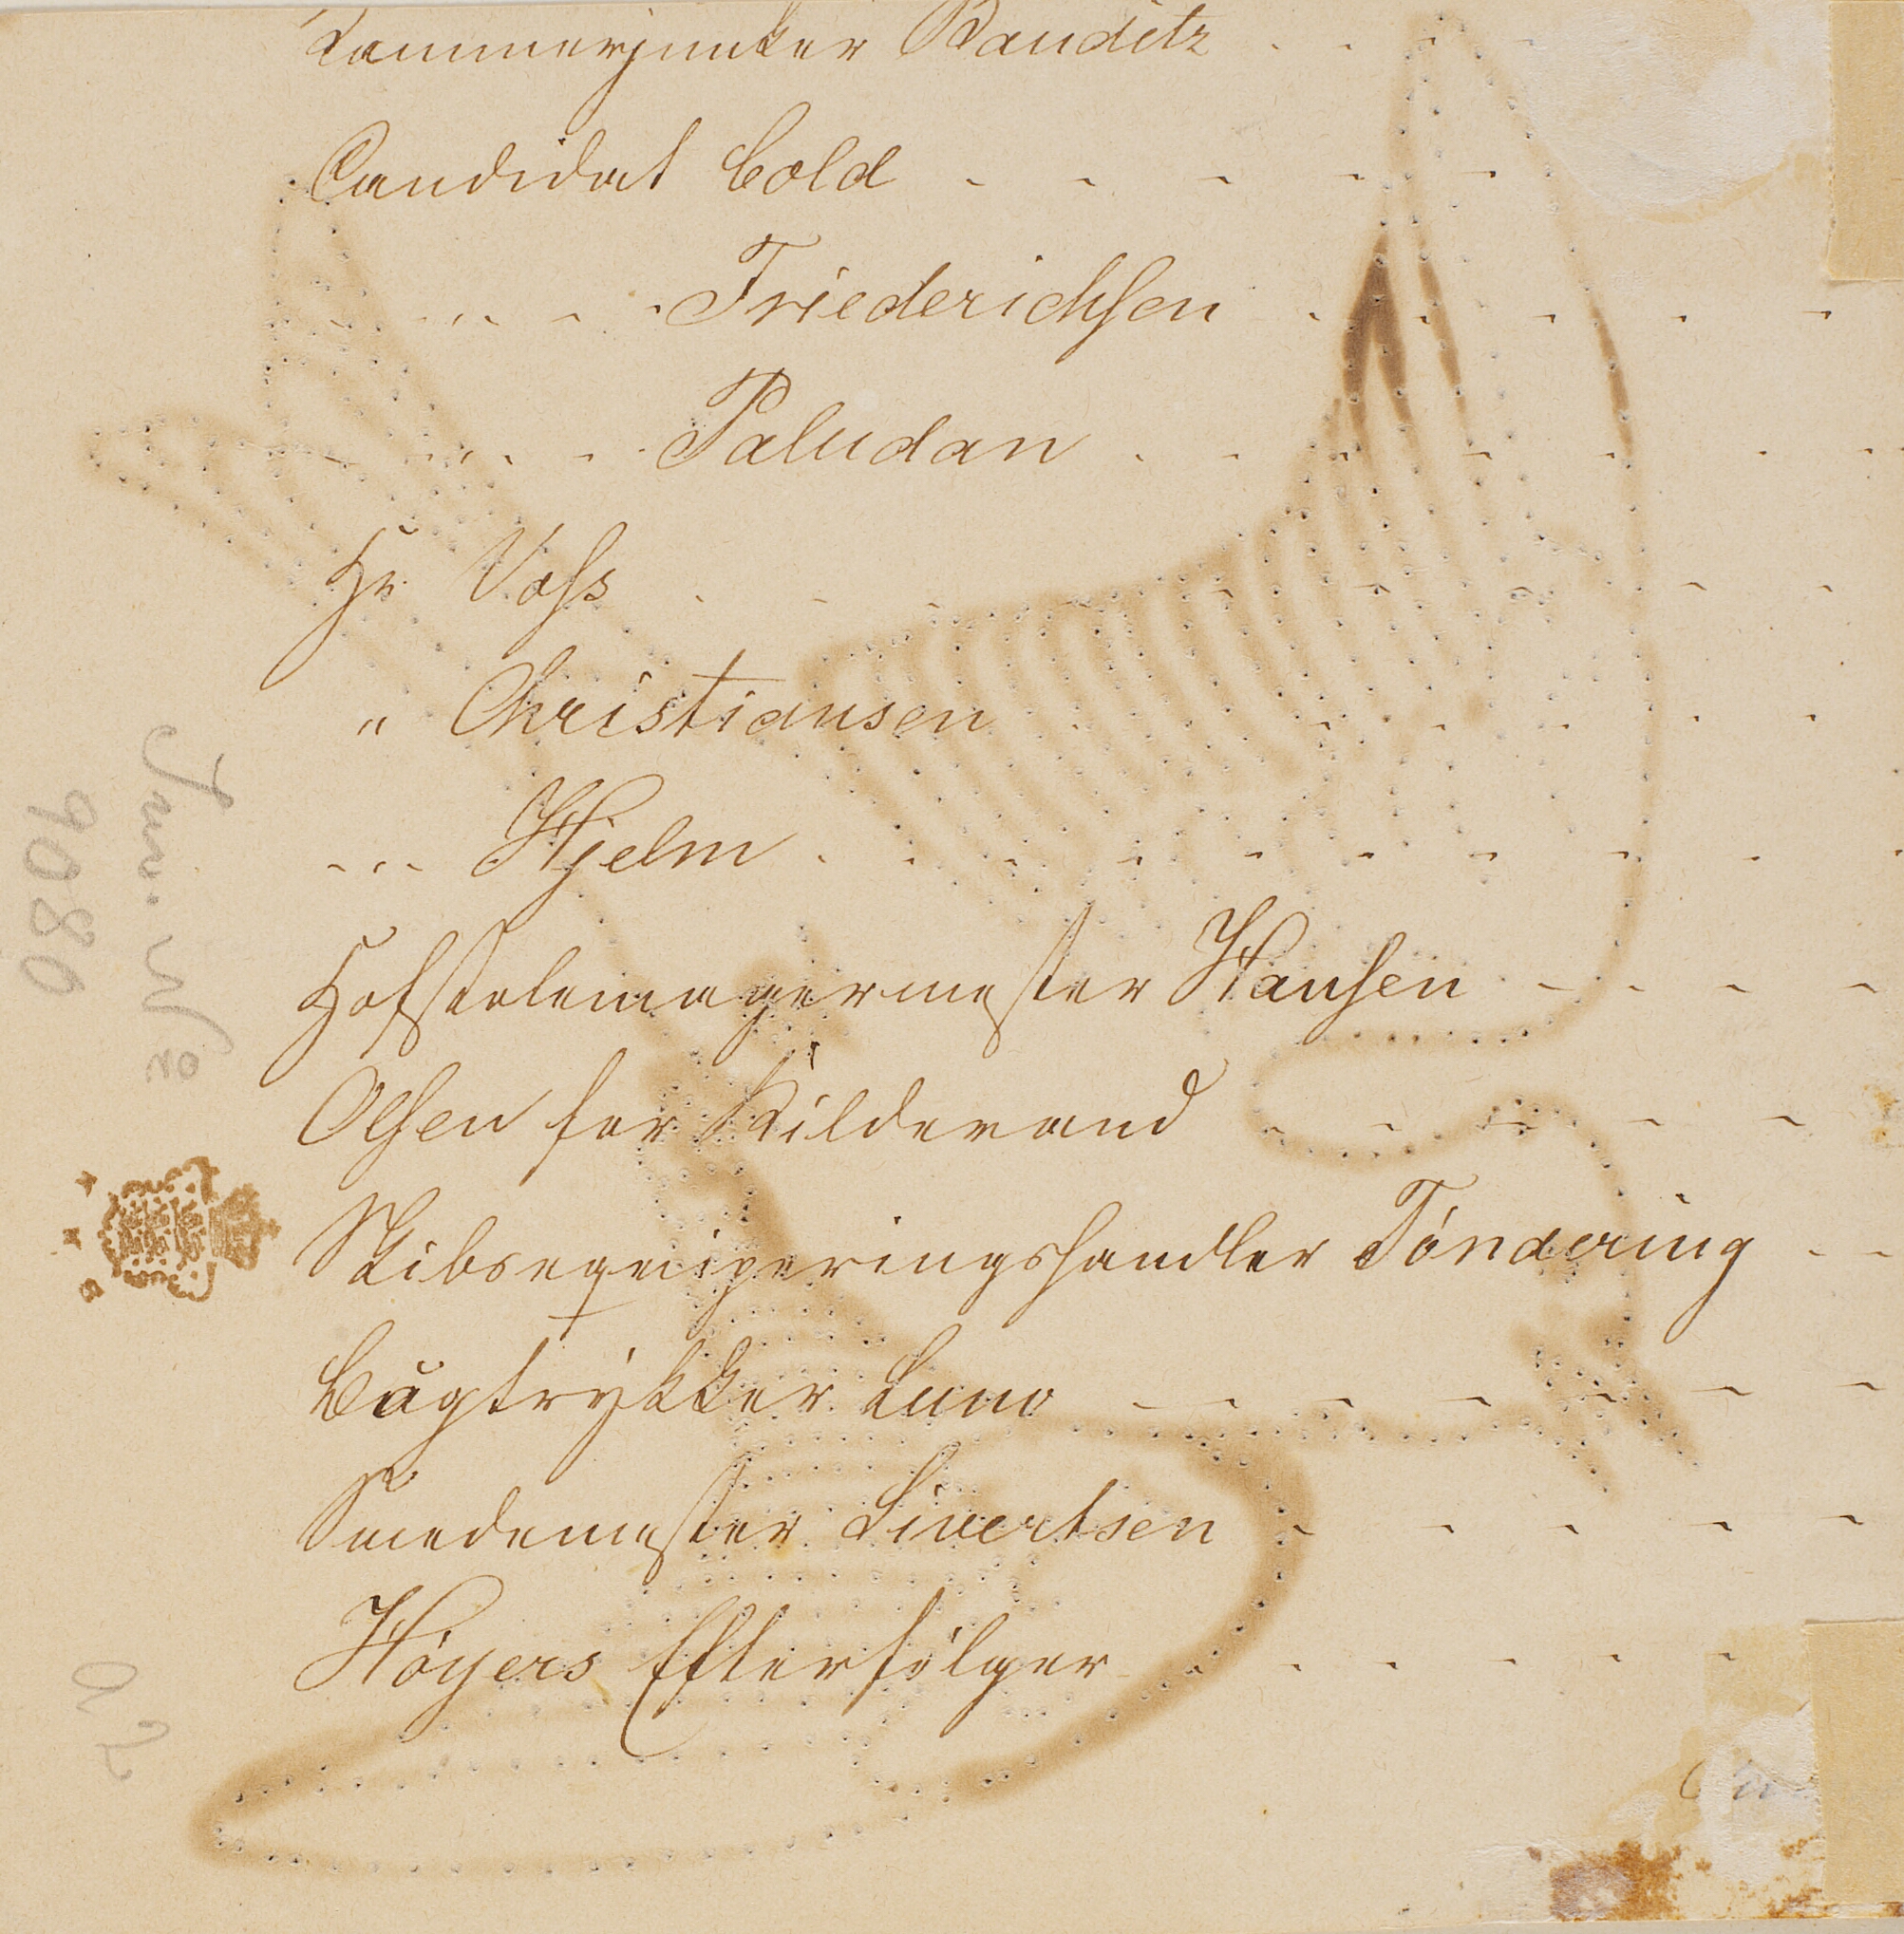 Kammerjunker Bauditz . . . .
Candidat Bold - - - - -
- - - - - Friederichsen - - - - -
- - - - - Paludan - - - - - - -
Hr Voss - - - - - - - -
" Christiansen - - - - - -
- - - Hjelm - - - - - - - - -
Hofskolemagermester Hansen - - - -
Olsen for Kildevand - - - - -
Skibseqviperingshandler Töndering - -
Bøgtrykker Luno - - - - - - -
Smedemester Sivertsen - - - - -
Höyers Efterfölger - - - - - -
Inv. No
9080